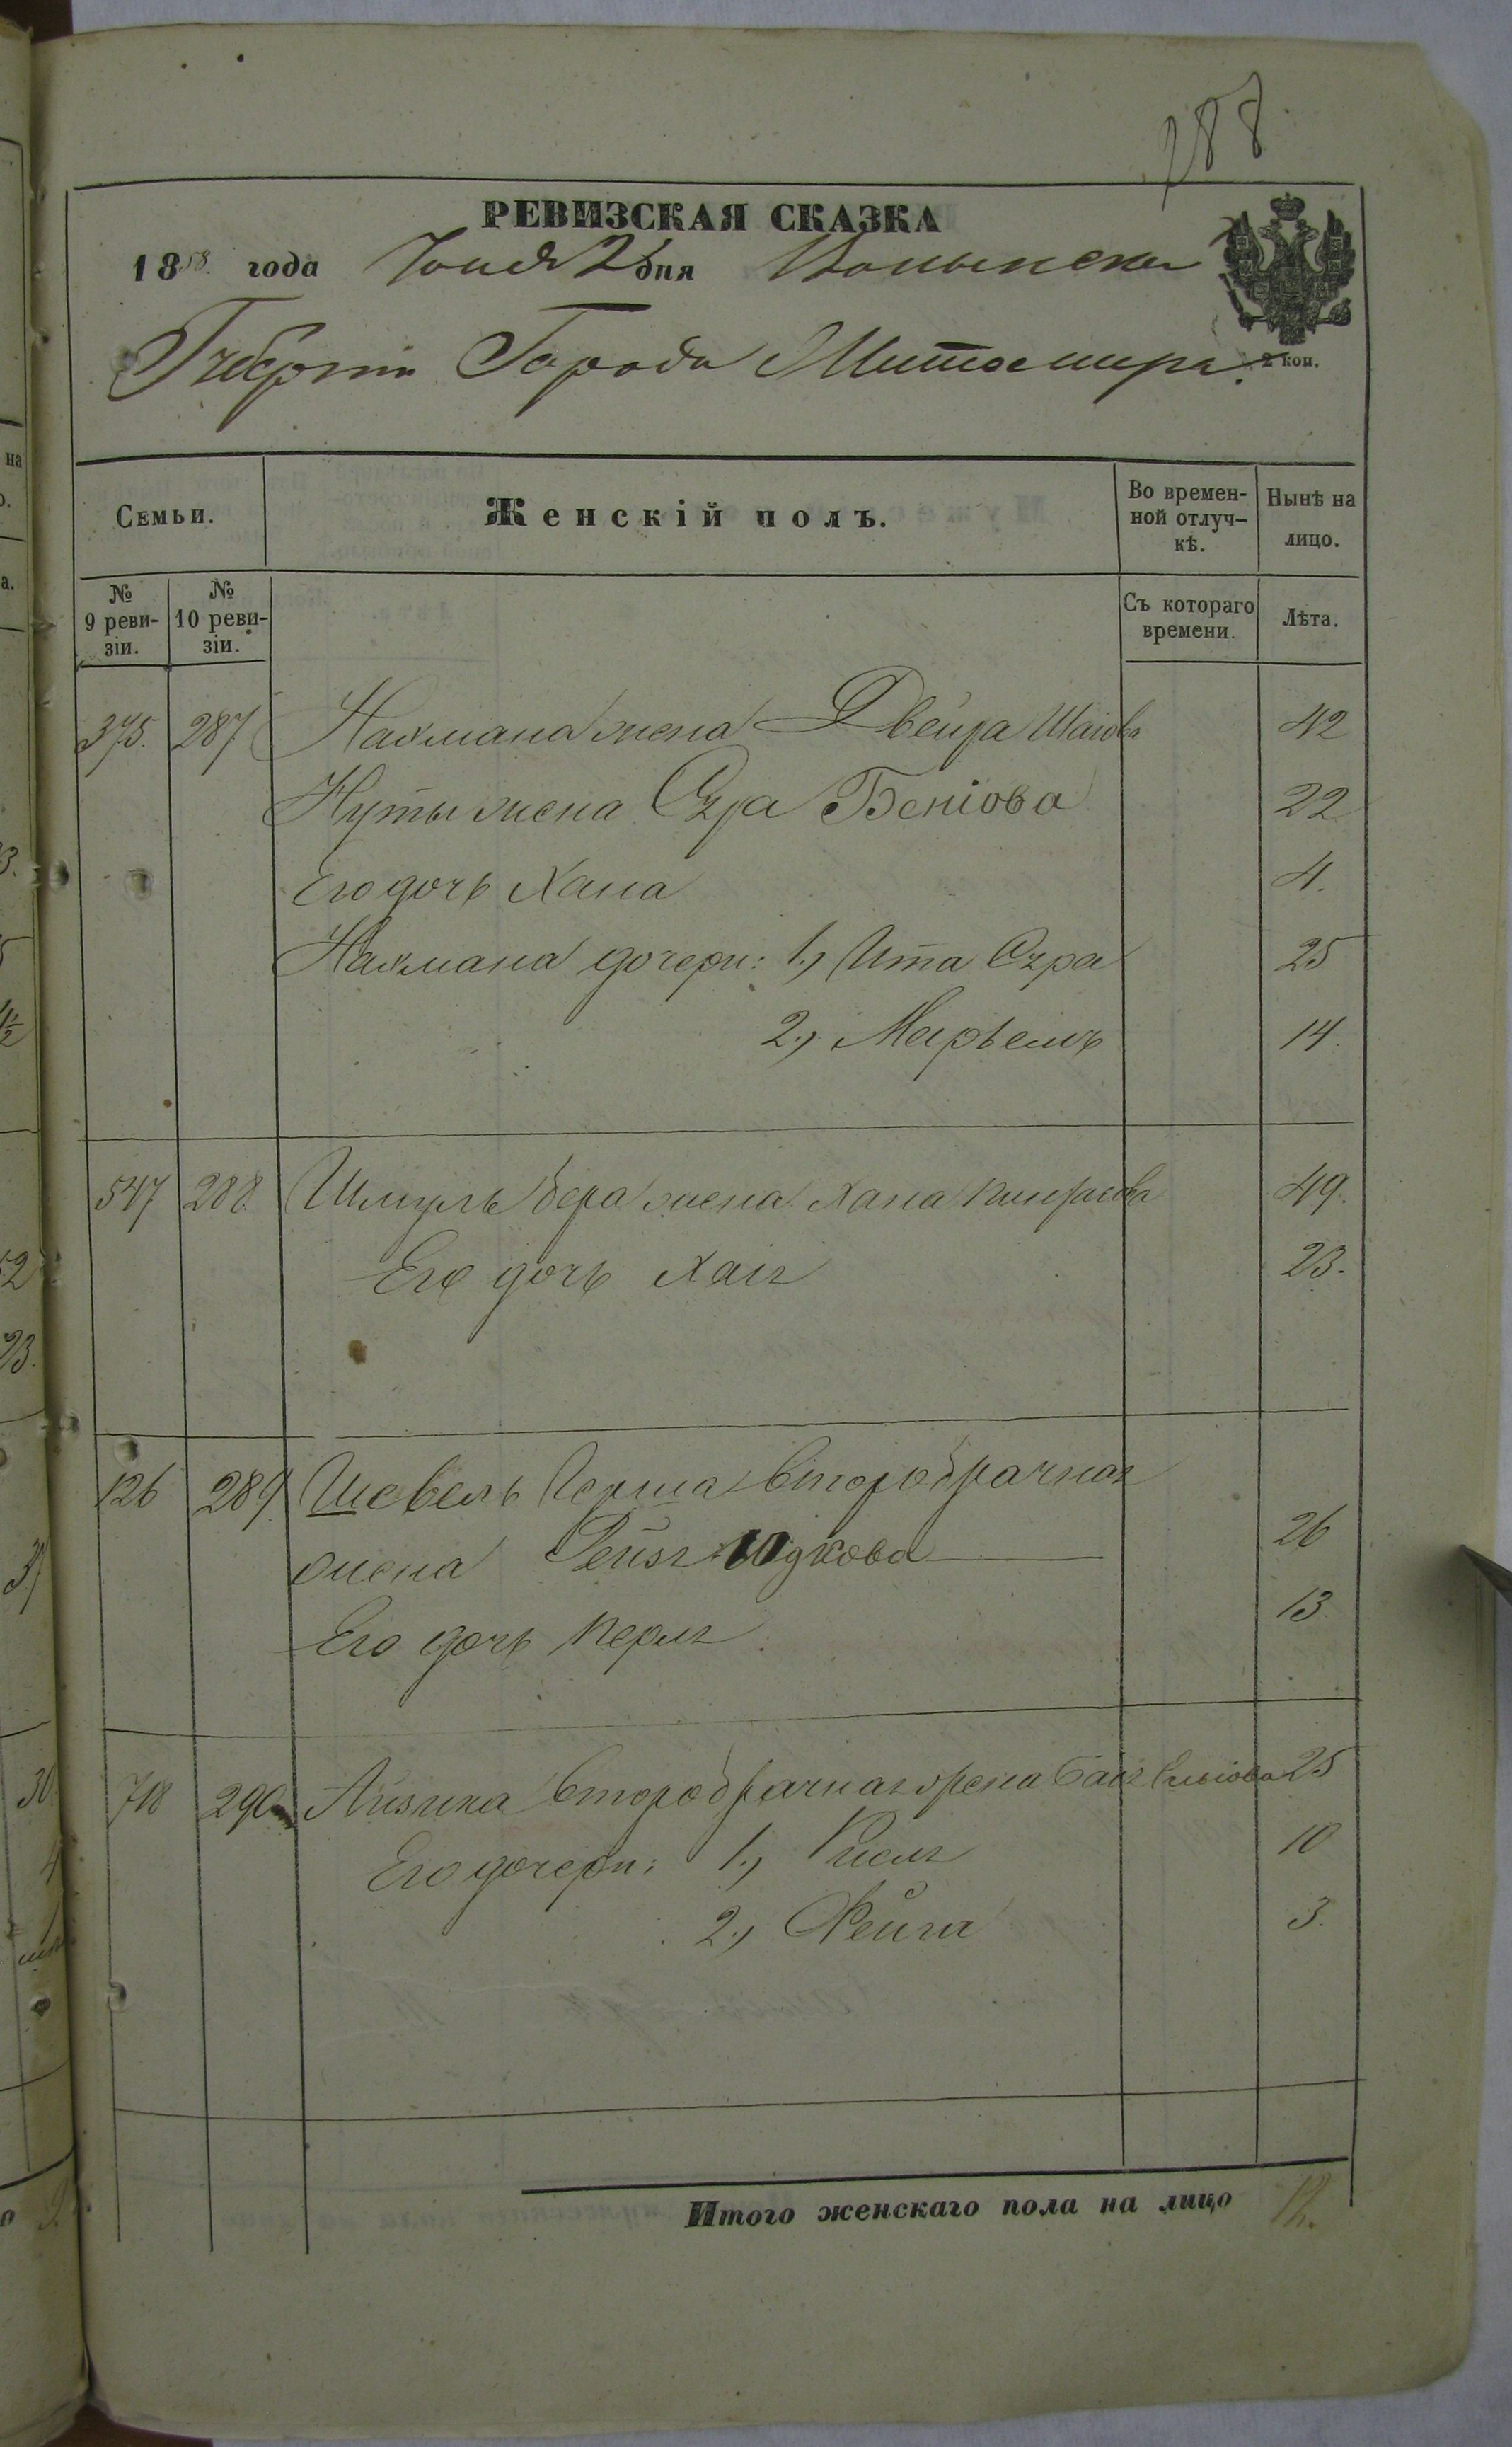 288
РЕВИЗСКАЯ СКАЗКА
1858 года Іюня 2 дня Волынской
Губерніи Города Житомира.
2 коп.
Семьи.
Женскій полъ.
Во времен-
ной отлуч-
кѣ.
Нынѣ на
лицо.
№
9 реви-
зіи.
№
10 реви-
зіи.
Съ котораго
времени.
Лѣта.
375. 287 Нахмана жена Двейра Шаіова 42
Нуты жена Сура Беніова 22
Его дочь Хана 4.
Нахмана дочери: 1., Ита Сура 25
2., Марьемъ 14.
547 288. Шмуль Бера жена Хана 49.
Его дочь Хая 23.
126 289. Шевель Герша второбрачная
жена Рейзя Юдкова 26
Его дочь Перля 13.
718 290 Айзика второбрачная жена Бася 25
Его дочери: 1., 10
2., Фейга 3.
Итого женскаго пола на лицо 12.